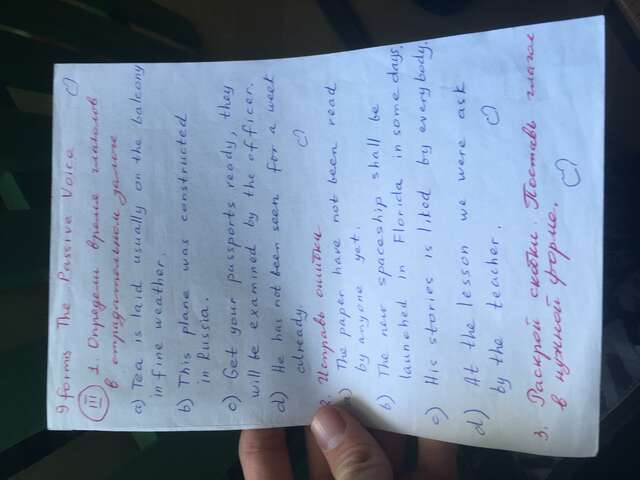 9 forms The Passive Voice
III 1. Определи время глаголов
в страдательном залоге
a) Tea is laid usually on the balcony
in fine weather.
b) This plane was constructed
in Russia.
c) Get your passports ready, they
will be examined by the officer.
d) He has not been seen for a week
already.
2. Исправь ошибки
a) The paper have not been read
by anyone yet.
b) The new spaceship shall be
launched in Florida in some days.
c) His stories is liked by everybody.
d) At the lesson we were ask
by the teacher.
3. Раскрой скобки. Поставь глагол
в нужной форме.